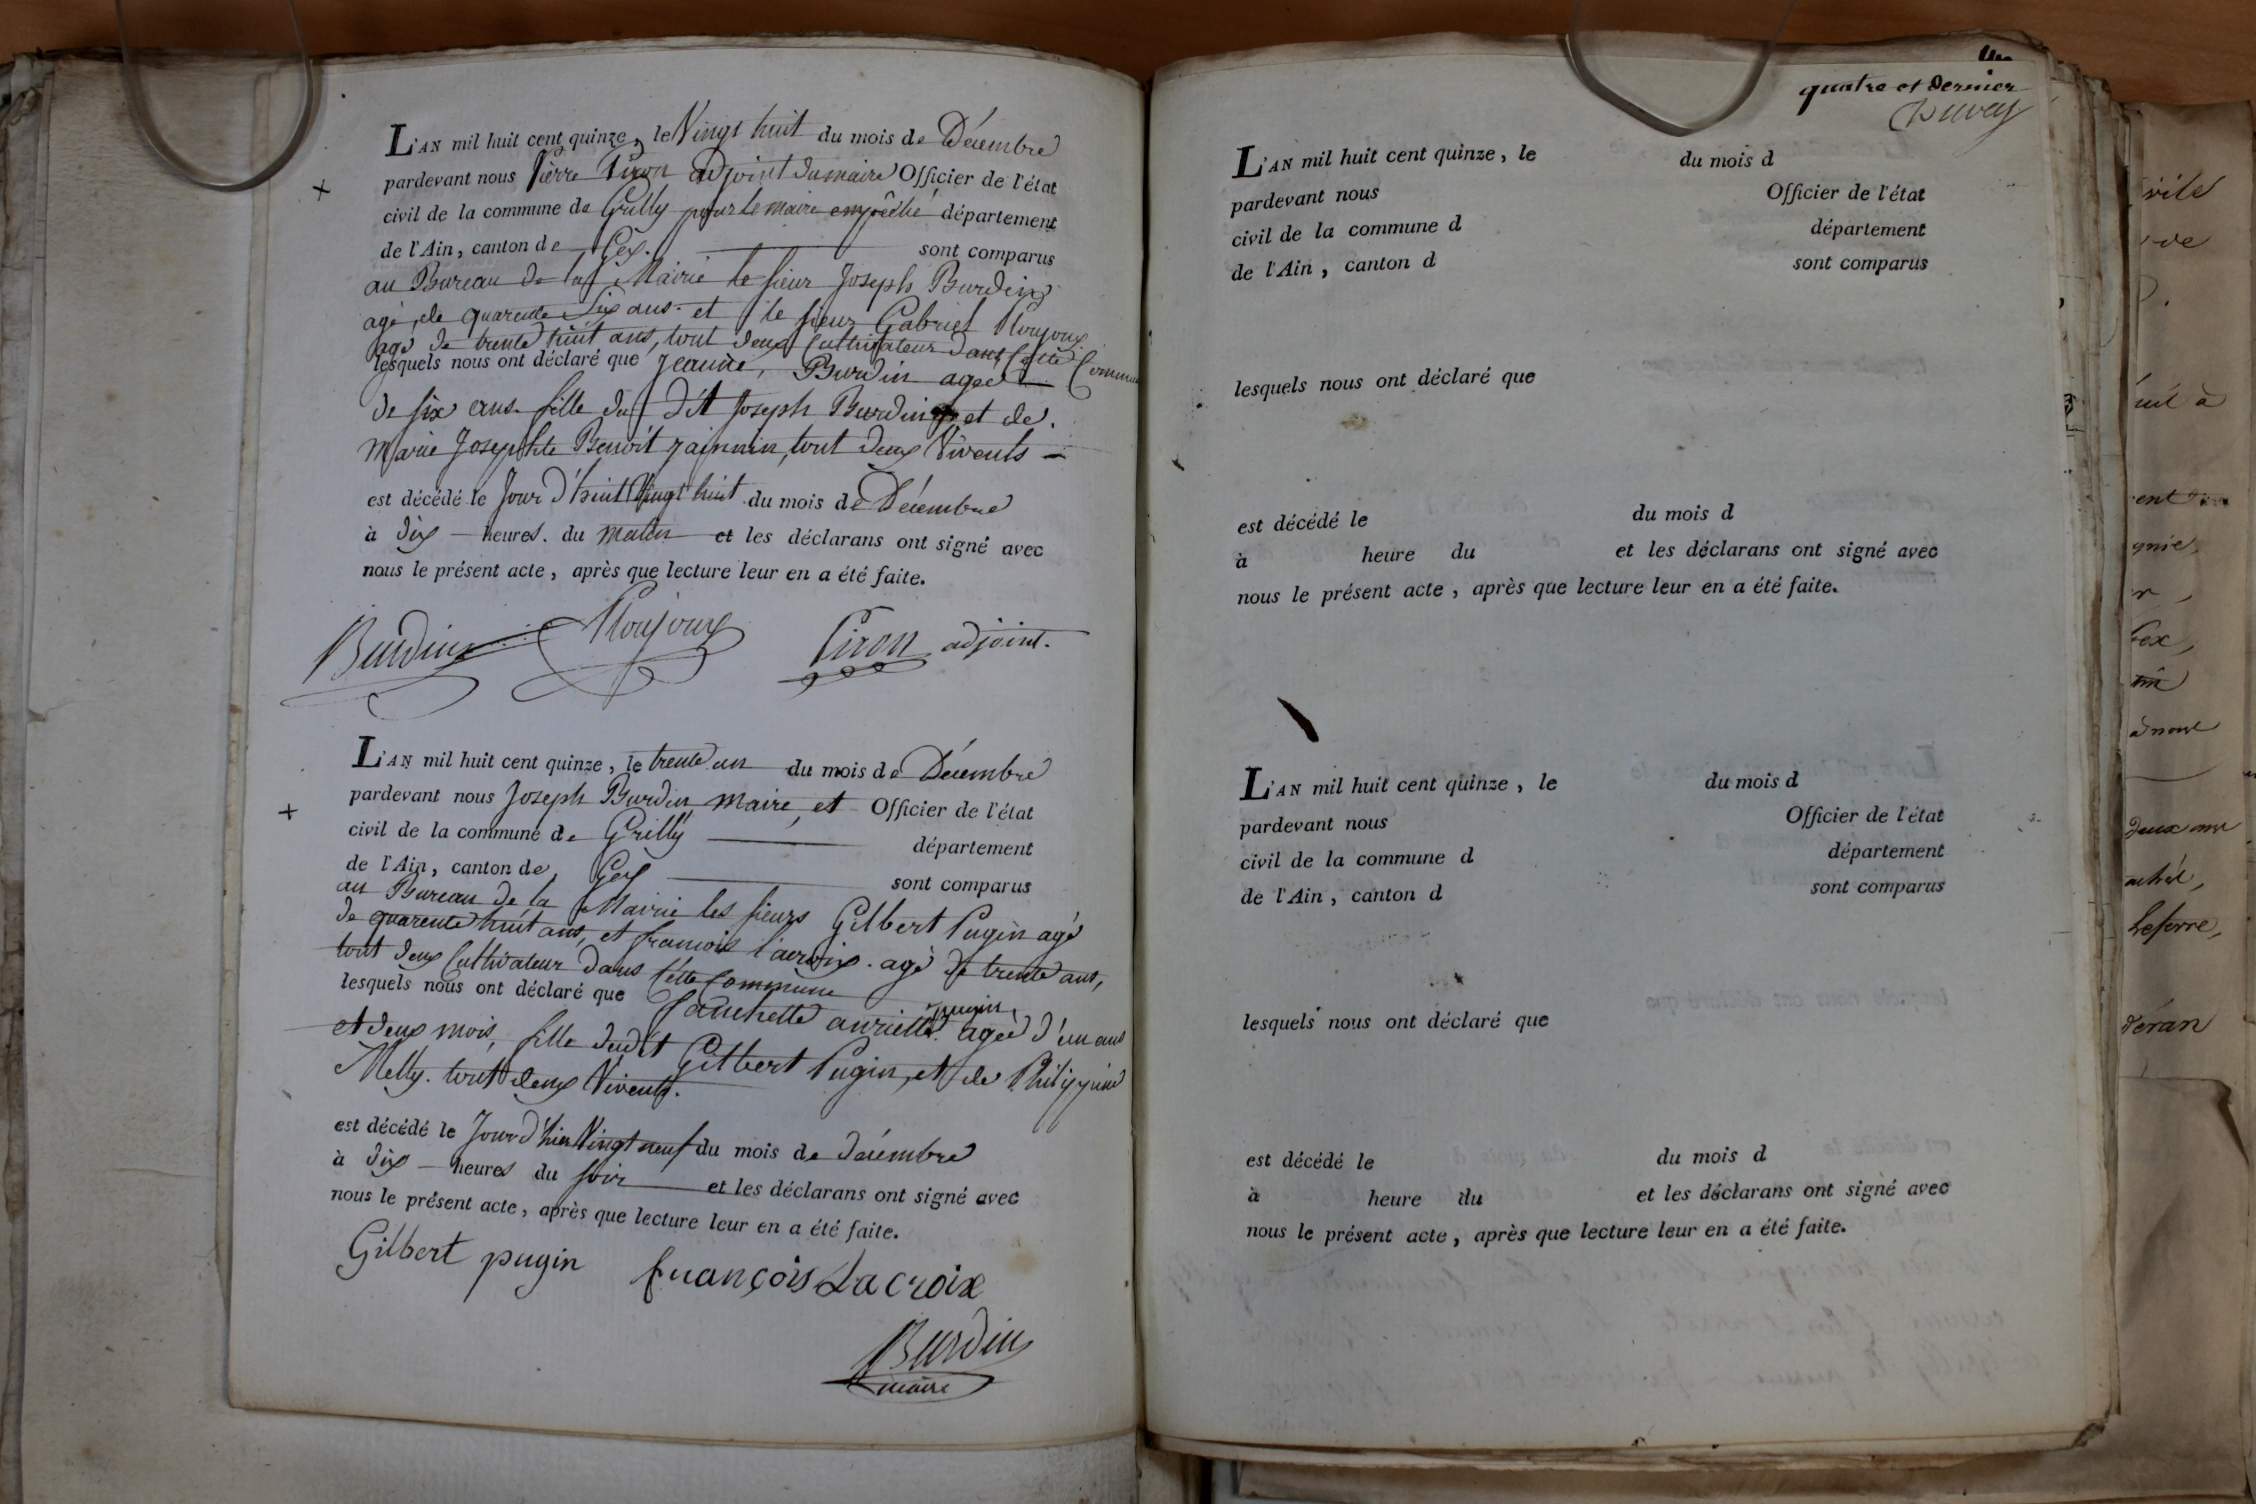 L'AN mil huit cent quinze, le Vingt huit du mois de Décembre
pardevant nous Pierre Piron adjoint du maire Officier de l'état
civil de la commune de Grilly pour le maire empêché département
de l'Ain, canton de Gex. sont comparus
au Bureau de la Mairie le sieur Joseph Burdin
agé de quarente six ans et le sieur Gabriel Roujoux
agé de trente huit ans, tout deux Cultivateur dans Cette Commune
lesquels nous ont déclaré que Jeanne, Burdin agée
de six ans. fille du dit Joseph Burdin et de
Marie Josephte Benoit tout deux Vivents
est décédé le Jour d'huit Vingt huit du mois de Décembre
à dix heures du matin et les déclarans ont signé avec
nous le présent acte, après que lecture leur en a été faite.
Burdin Roujoux Piron adjoint.
L'AN mil huit cent quinze, le trente un du mois de Décembre
pardevant nous Joseph Burdin maire, et Officier de l'état
civil de la commune de Grilly département
de l'Ain, canton de Gex sont comparus
au Bureau de la Mairie les sieurs Gilbert Pugin agé
de quarente huit ans, et francois lacroix. agé de trente ans,
tout deux Cultivateur dans Cette Commune
lesquels nous ont déclaré que fanchette pugin agée d'un ans
et deux mois, fille dudit Gilbert Pugin, et de Philippine
Melly. tout deux Vivents.
est décédé le Jour d'hier Vingt neuf du mois de décembre
à dix heures du soir et les déclarans ont signé avec
nous le présent acte, après que lecture leur en a été faite.
Gilbert pugin françois Lacroix
Burdin
maire
quatre et dernier
L'AN mil huit cent quinze, le du mois d
pardevant nous Officier de l'état
civil de la commune d département
de l'Ain, canton d sont comparus
lesquels nous ont déclaré que
est décédé le du mois d
à heure du et les déclarans ont signé avec
nous le présent acte, après que lecture leur en a été faite.
L'AN mil huit cent quinze, le du mois d
pardevant nous Officier de l'état
civil de la commune d département
de l'Ain, canton d sont comparus
lesquels nous ont déclaré que
est décédé le du mois d
à heure du et les déclarans ont signé avec
nous le présent acte, après que lecture leur en a été faite.